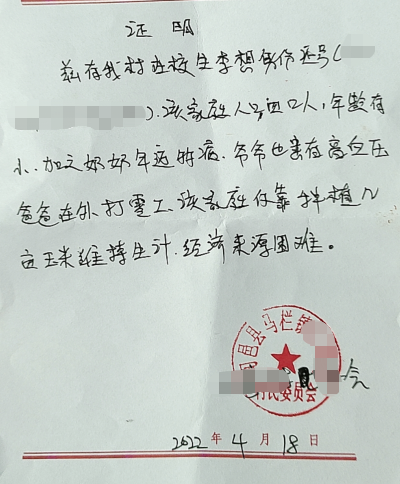 证明
兹有我村在校生李想身份证号(
).该家庭人口四口人,年龄有
小.加之奶奶年迈時病.爷爷也患有高血压
爸爸在外打零工.该家庭仅靠种植几
亩玉米维持生计.经济来源困难。
息县马栏镇
村民委员会
会
2022年4月18日